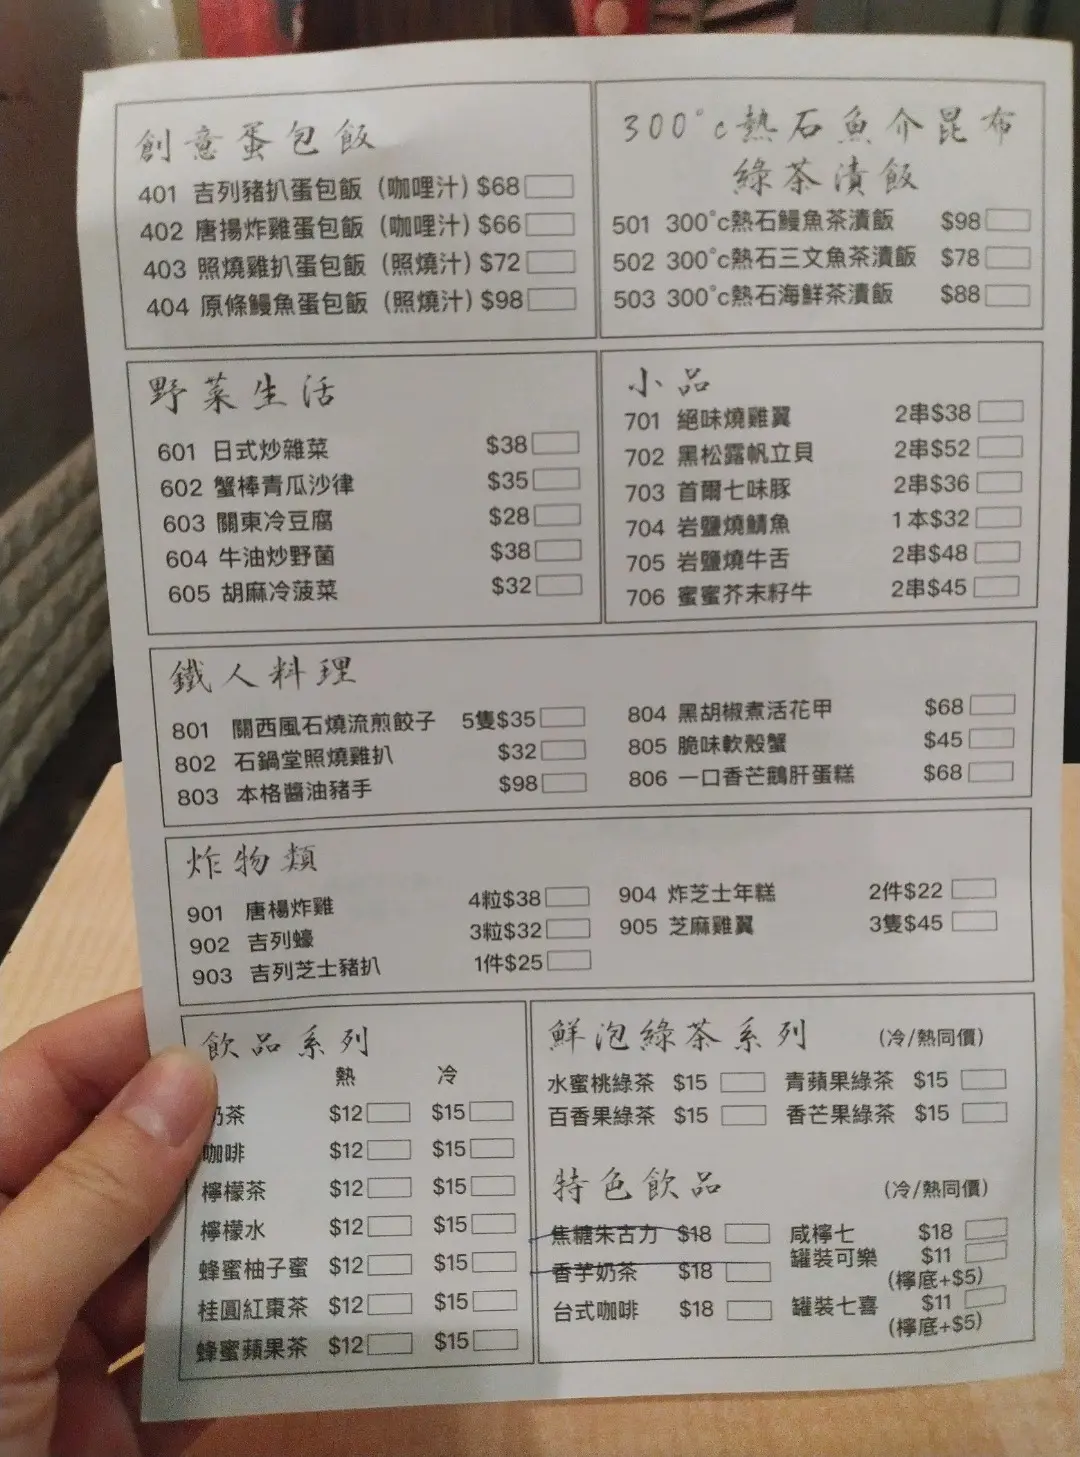 創意蛋包飯
401 吉列豬扒蛋包飯（咖哩汁）$68
402 唐揚炸雞蛋包飯（咖哩汁）$66
403 照燒雞扒蛋包飯（照燒汁）$72
404 原條鰻魚蛋包飯（照燒汁）$98
300°c熱石魚介昆布
綠茶漬飯
501 300°c熱石鰻魚茶漬飯 $98
502 300°c熱石三文魚茶漬飯 $78
503 300°c熱石海鮮茶漬飯 $88
野菜生活
601 日式炒雜菜 $38
602 蟹棒青瓜沙律 $35
603 關東冷豆腐 $28
604 牛油炒野菌 $38
605 胡麻冷菠菜 $32
小品
701 絕味燒雞翼 2串$38
702 黑松露帆立貝 2串$52
703 首爾七味豚 2串$36
704 岩鹽燒鯖魚 1本$32
705 岩鹽燒牛舌 2串$48
706 蜜蜜芥末籽牛 2串$45
鐵人料理
801 關西風石燒流煎餃子 5隻$35
802 石鍋堂照燒雞扒 $32
803 本格醬油豬手 $98
804 黑胡椒煮活花甲 $68
805 脆味軟殼蟹 $45
806 一口香芒鵝肝蛋糕 $68
炸物類
901 唐楊炸雞 4粒$38
902 吉列蠔 3粒$32
903 吉列芝士豬扒 1件$25
904 炸芝士年糕 2件$22
905 芝麻雞翼 3隻$45
飲品系列
熱 冷
奶茶 $12 $15
咖啡 $12 $15
檸檬茶 $12 $15
檸檬水 $12 $15
蜂蜜柚子蜜 $12 $15
桂圓紅棗茶 $12 $15
蜂蜜蘋果茶 $12 $15
鮮泡綠茶系列 (冷/熱同價)
水蜜桃綠茶 $15 青蘋果綠茶 $15
百香果綠茶 $15 香芒果綠茶 $15
特色飲品 (冷/熱同價)
焦糖朱古力 $18
香芋奶茶 $18
台式咖啡 $18
咸檸七 $18
罐裝可樂 $11
(檸底+$5)
罐裝七喜 $11
(檸底+$5)